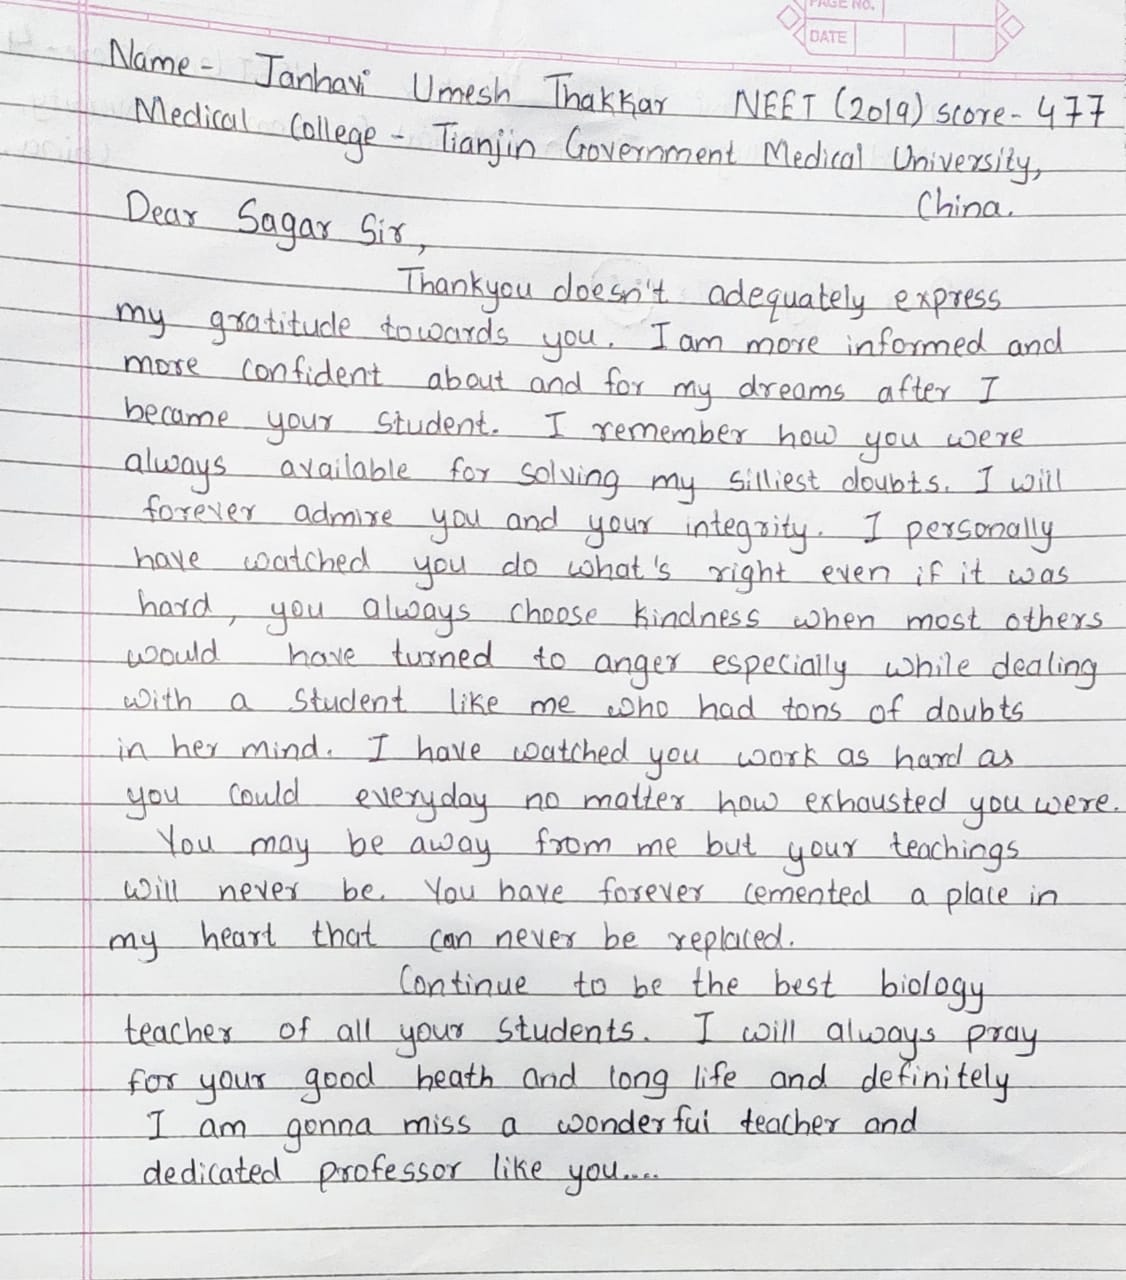 PAGE NO.
DATE
Name - Janhavi Umesh Thakkar NEET (2019) score - 477
Medical College - Tianjin Government Medical University,
China.
Dear Sagar Sir,
Thankyou doesn't adequately express
my gratitude towards you. I am more informed and
more confident about and for my dreams after I
became your student. I remember how you were
always available for solving my silliest doubts. I will
forever admire you and your integrity. I personally
have watched you do what's right even if it was
hard, you always choose kindness when most others
would have turned to anger especially while dealing
with a student like me who had tons of doubts
in her mind. I have watched you work as hard as
you could everyday no matter how exhausted you were.
You may be away from me but your teachings
will never be. You have forever cemented a place in
my heart that can never be replaced.
Continue to be the best biology
teacher of all your students. I will always pray
for your good heath and long life and definitely
I am gonna miss a wonderful teacher and
dedicated professor like you....